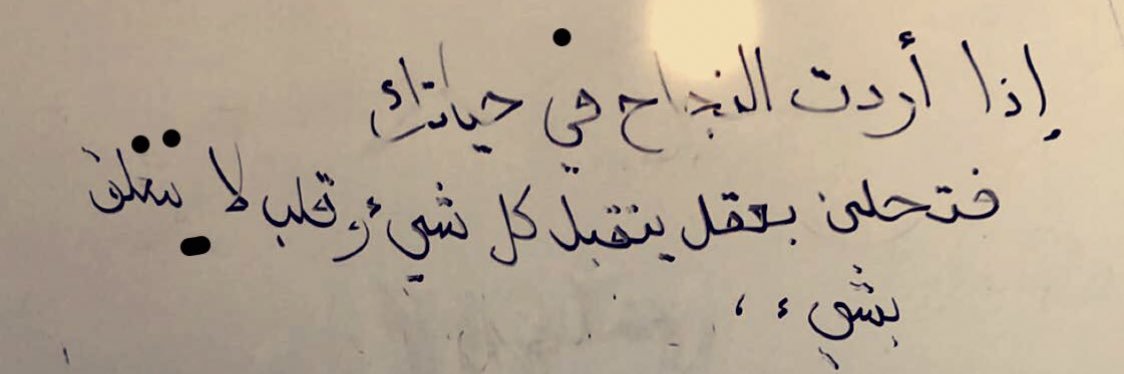 إذا أردت النجاح في حياتك
فتحلى بعقل يتقبل كل شيئ وقلب لا يتعلق
بشيء ،